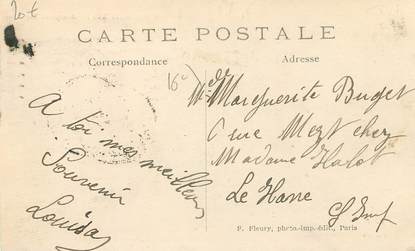 20 €
CARTE POSTALE
Correspondance
Adresse
16 c
Mlle Marguerite Buget
rue chez
Madame Halot
Le Havre
S Inf
A toi mes meilleurs
Souvenir
Louisa
F. Fleury, photo-imp. édit., Paris